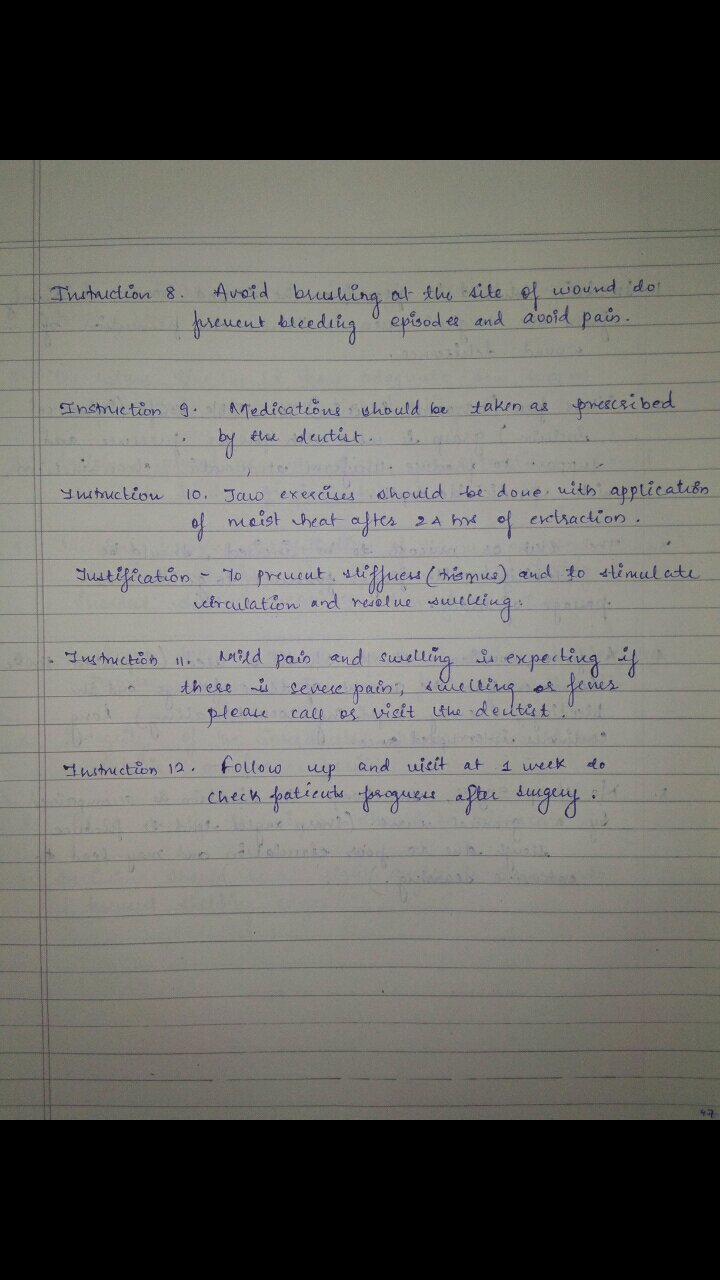 Instruction 8. Avoid brushing at the site of wound do
prevent bleeding episodes and avoid pain.
Instruction 9. Medications should be taken as prescribed
by the dentist.
Instruction 10. Jaw exercises should be done with application
of moist heat after 24 hrs of extraction.
Justification - To prevent stiffness (trismus) and to stimulate
circulation and resolve swelling.
Instruction 11. Mild pain and swelling is expecting if
there is severe pain, swelling or fever
please call or visit the dentist.
Instruction 12. Follow up and visit at 1 week do
check patients progress after surgery.
47